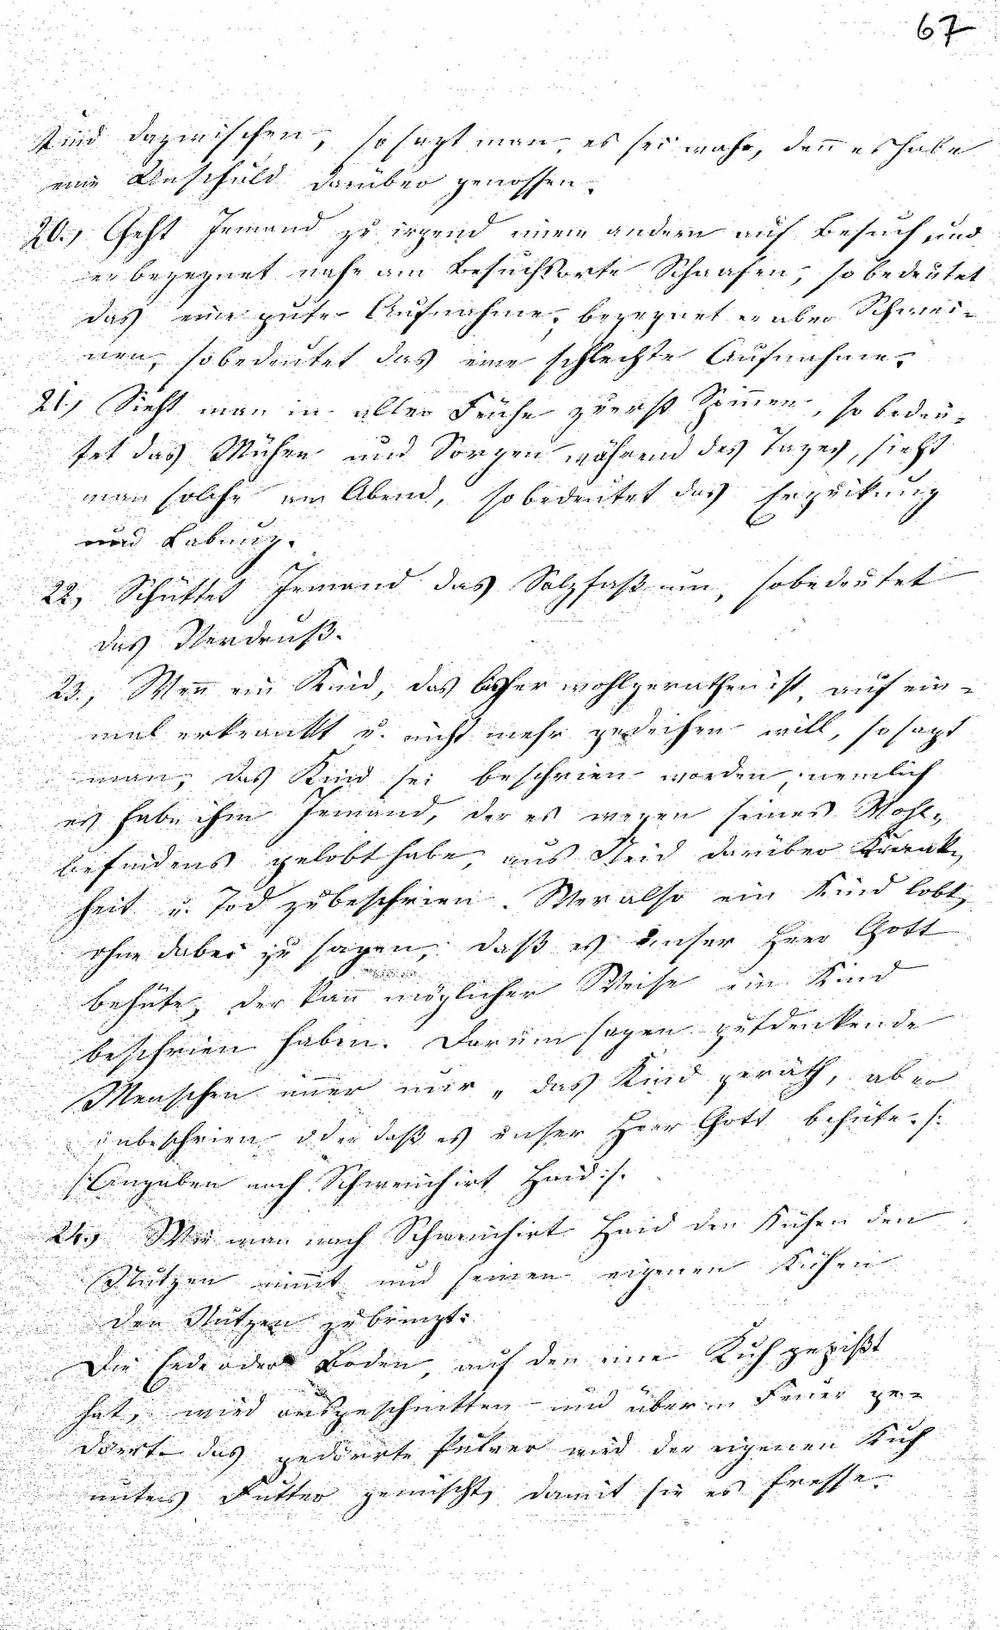 67
Kind dazwischen, so sagt man, es sei wahr, den̄ es habe
eine Unschuld darüber genossen.
20., Geht Jemand zu irgend einem andern auf Besuch und
er begegnet nahe am Besuchsorte Schaafen, so bedeutet
das eine gute Aufnahme, begegnet er aber Schwei-
nen, so bedeutet das eine schlechte Aufnahme.
21., Sieht man in aller Frühe zuerst Spinnen, so bedeu-
tet das Mühen und Sorgen während des Tages, sieht
man solche am Abend, so bedeutet das Erquikung
und Labung.
22., Schüttet Jemand das Salzfaß um, so bedeutet
das Verdruß.
23., Wen̄ ein Kind, das bisher wohlgerathen ist, auf ein-
mal erkrankt u. nicht mehr gedeihen will, so sagt
man, das Kind sei beschrien worden, nemlich
es habe ihm Jemand, der es wegen seines Wohl-
befindens gelobt habe, aus Neid darüber Krank-
heit u. Tod zubeschrien. Wer also ein Kind lobt,
ohne dabei zu sagen, daß es unser Herr Gott
behüte, der kan̄ möglicher Weise ein Kind
beschrien haben. Darum sagen gutdenkende
Menschen im̄er nur „das Kind geräth, aber
unbeschrien oder daß es unser Herr Gott behüte. /:
/: Angaben nach Schweinhirt Haid :/.
24., Wie man nach Schweinhirt Haid den Kühen den
Nutzen nim̄t und seinen eigenen Kühen
den Nutzen zubringt:
Die Erde oder Boden, auf den eine Kuh gepißt
hat, wird ausgeschnitten und überm Feuer ge-
dörrt das gedörrte Pulver wird der eigenen Kuh
unters Futter gemischt, damit sie es fresse.